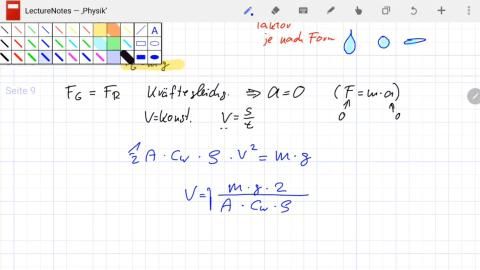 LectureNotes — ‚Physik'
A
faktor
je nach Form
m·g
Seite 9
F_G = F_R Kräftegleichg. ⇒ a=0 (F=m·a)
0 0
V=konst. V=s/t
½ A · C_w · ρ · V² = m·g
V=√(m·g·2 / A · C_w · ρ)